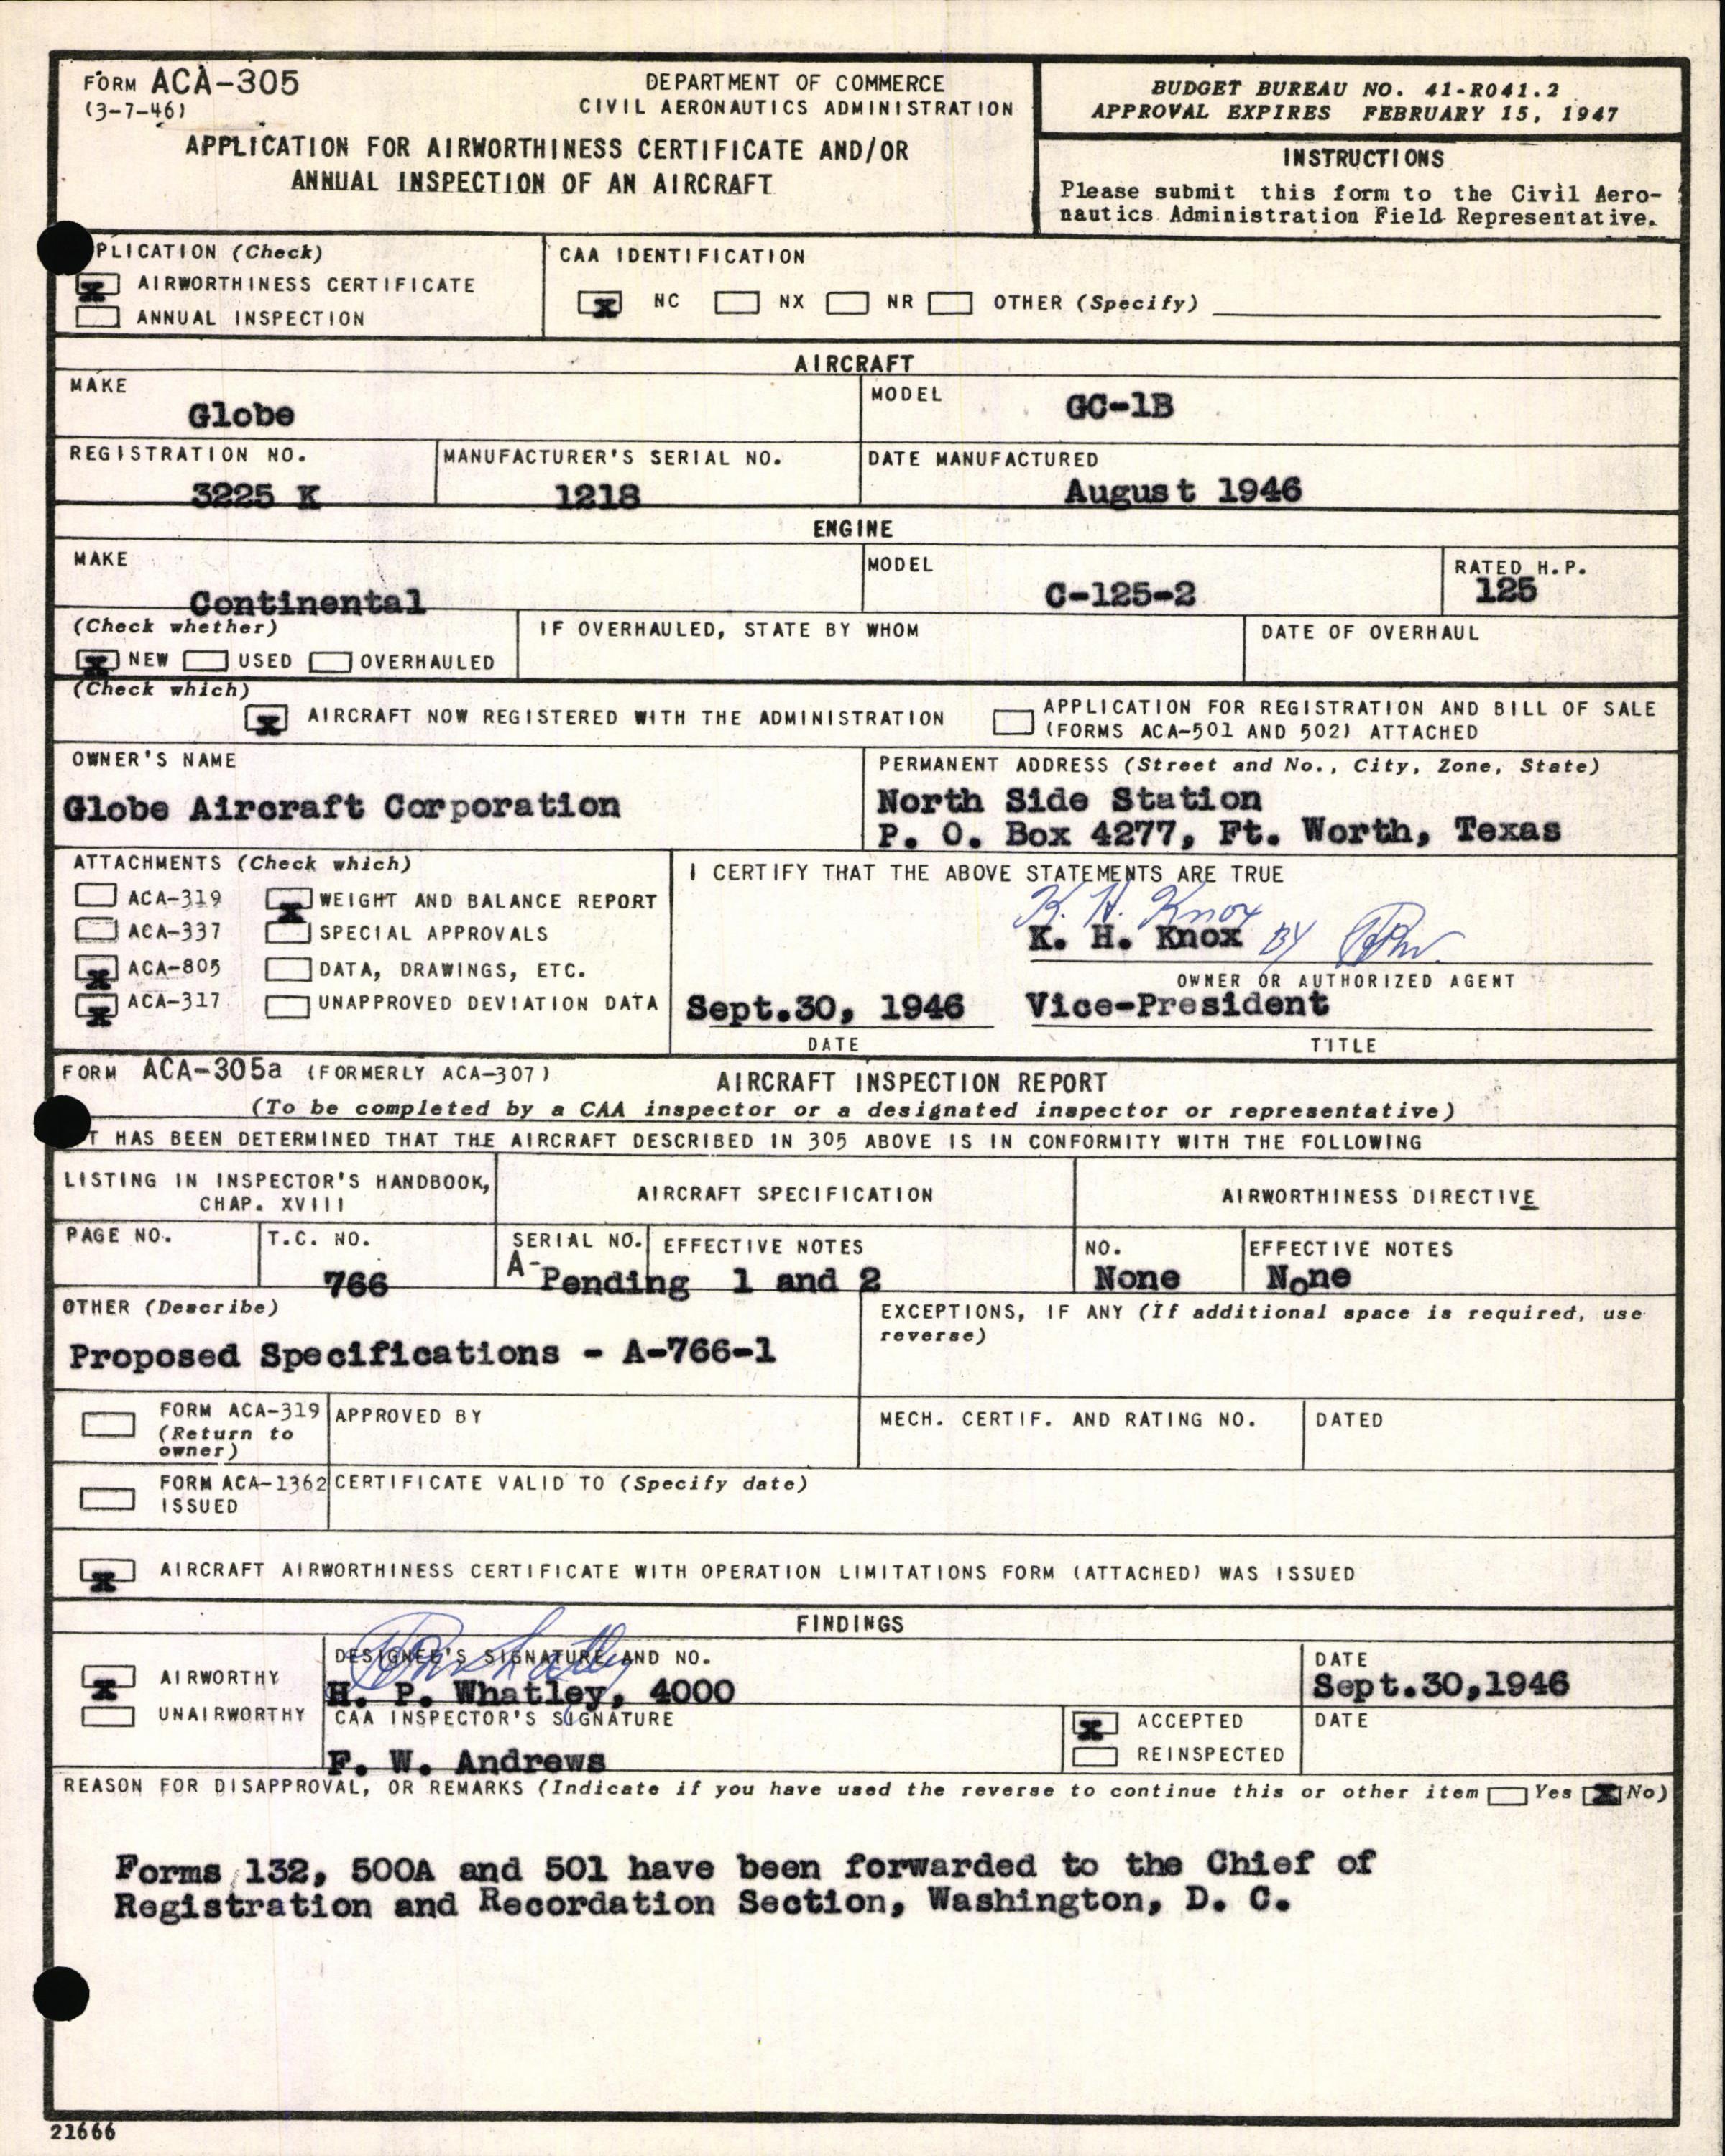 FORM ACA-305
(3-7-46)
DEPARTMENT OF COMMERCE
CIVIL AERONAUTICS ADMINISTRATION
APPLICATION FOR AIRWORTHINESS CERTIFICATE AND/OR
ANNUAL INSPECTION OF AN AIRCRAFT
BUDGET BUREAU NO. 41-R041.2
APPROVAL EXPIRES FEBRUARY 15, 1947
INSTRUCTIONS
Please submit this form to the Civil Aero-
nautics Administration Field Representative.
PLICATION (Check)
X AIRWORTHINESS CERTIFICATE
ANNUAL INSPECTION
CAA IDENTIFICATION
X NC NX NR OTHER (Specify)
AIRCRAFT
MAKE
Globe
MODEL
GC-1B
REGISTRATION NO.
3225 K
MANUFACTURER'S SERIAL NO.
1218
DATE MANUFACTURED
August 1946
ENGINE
MAKE
Continental
MODEL
C-125-2
RATED H.P.
125
(Check whether)
X NEW USED OVERHAULED
IF OVERHAULED, STATE BY WHOM
DATE OF OVERHAUL
(Check which)
X AIRCRAFT NOW REGISTERED WITH THE ADMINISTRATION
APPLICATION FOR REGISTRATION AND BILL OF SALE
(FORMS ACA-501 AND 502) ATTACHED
OWNER'S NAME
Globe Aircraft Corporation
PERMANENT ADDRESS (Street and No., City, Zone, State)
North Side Station
P. O. Box 4277, Ft. Worth, Texas
ATTACHMENTS (Check which)
ACA-319 X WEIGHT AND BALANCE REPORT
ACA-337 SPECIAL APPROVALS
X ACA-805 DATA, DRAWINGS, ETC.
X ACA-317 UNAPPROVED DEVIATION DATA
I CERTIFY THAT THE ABOVE STATEMENTS ARE TRUE
K. H. Knox
K. H. Knox BY
OWNER OR AUTHORIZED AGENT
Sept.30, 1946 Vice-President
DATE TITLE
FORM ACA-305a (FORMERLY ACA-307)
AIRCRAFT INSPECTION REPORT
(To be completed by a CAA inspector or a designated inspector or representative)
T HAS BEEN DETERMINED THAT THE AIRCRAFT DESCRIBED IN 305 ABOVE IS IN CONFORMITY WITH THE FOLLOWING
LISTING IN INSPECTOR'S HANDBOOK,
CHAP. XVIII
AIRCRAFT SPECIFICATION
AIRWORTHINESS DIRECTIVE
PAGE NO.
T.C. NO.
766
SERIAL NO.
A-Pending
EFFECTIVE NOTES
1 and 2
NO.
None
EFFECTIVE NOTES
None
OTHER (Describe)
Proposed Specifications - A-766-1
EXCEPTIONS, IF ANY (If additional space is required, use
reverse)
FORM ACA-319
(Return to
owner)
APPROVED BY
MECH. CERTIF. AND RATING NO.
DATED
FORM ACA-1362
ISSUED
CERTIFICATE VALID TO (Specify date)
X AIRCRAFT AIRWORTHINESS CERTIFICATE WITH OPERATION LIMITATIONS FORM (ATTACHED) WAS ISSUED
FINDINGS
X AIRWORTHY
UNAIRWORTHY
DESIGNEE'S SIGNATURE AND NO.
H. P. Whatley, 4000
DATE
Sept.30,1946
CAA INSPECTOR'S SIGNATURE
F. W. Andrews
X ACCEPTED
REINSPECTED
DATE
REASON FOR DISAPPROVAL, OR REMARKS (Indicate if you have used the reverse to continue this or other item Yes X No)
Forms 132, 500A and 501 have been forwarded to the Chief of
Registration and Recordation Section, Washington, D. C.
21666